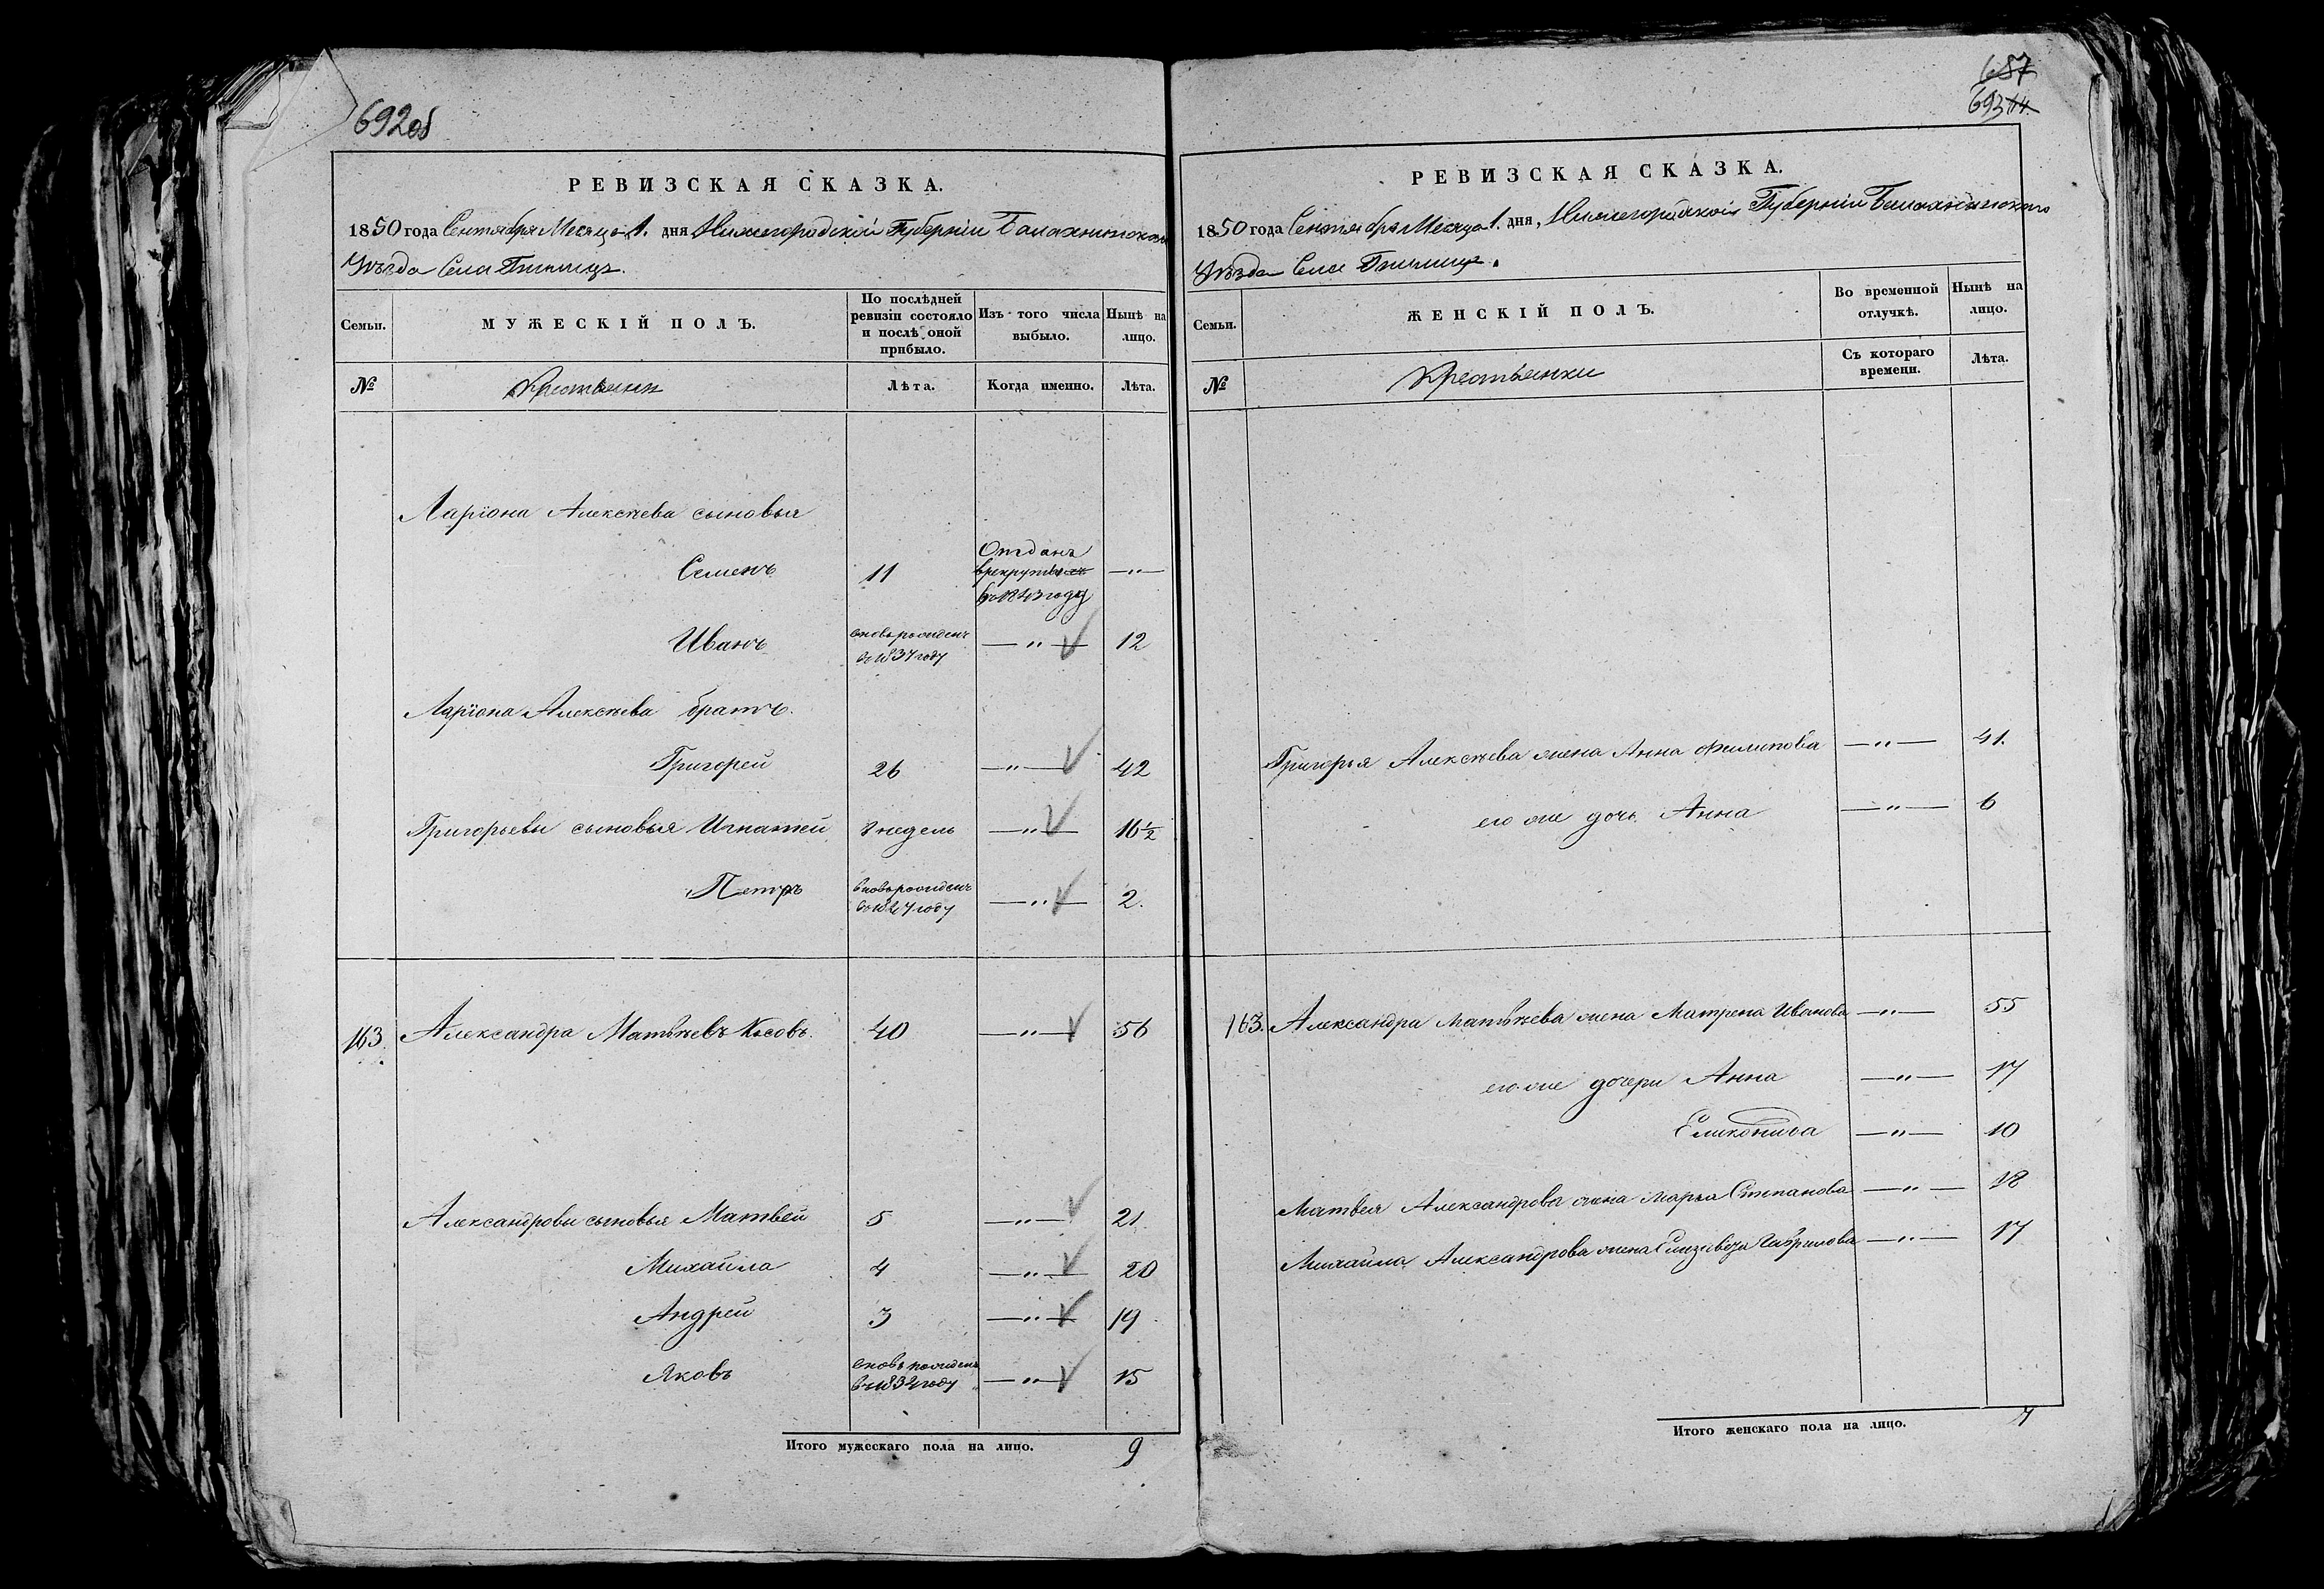 692об
РЕВИЗСКАЯ СКАЗКА.
1850 года Сентября Месяца 1. дня Нижегородской Губерніи Балахнинскаго
Уѣзда Села
Семьи.
МУЖЕСКІЙ ПОЛЪ.
По послѣдней ревизіи состояло и послѣ оной прибыло.
Изъ того числа выбыло.
Нынѣ на лицо.
№
Крестьяне
Лѣта.
Когда именно.
Лѣта.
Ларіона Алексѣева сыновья
Семенъ 11 Отданъ в рекруты въ 1843 году —"—
Иванъ вновь рожденъ въ 1837 году —"— 12
Ларіона Алексѣева братъ.
Григорей 26 —"— 42
Григорьевы сыновья Игнатей 8 недель —"— 16½
Петръ вновь рожденъ —"— 2.
163. Александра Матвѣевъ 40 —"— 56
Александровы сыновья Матвей 5 —"— 21.
Михайла 4 —"— 20
Андрей 3 —"— 19
Яковъ вновь рожденъ —"— 15
Итого мужескаго пола на лицо. 9
687
693
РЕВИЗСКАЯ СКАЗКА.
1850 года Сентября Месяца 1. дня, Нижегородской Губерніи Балахнинскаго
Уѣзда Села
Семьи.
ЖЕНСКІЙ ПОЛЪ.
Во временной отлучкѣ.
Нынѣ на лицо.
№
Крестьянки
Съ котораго времени.
Лѣта.
Григорья Алексѣева жена Анна Филипова —"— 41.
его же дочь Анна —"— 6
163. Александра Матвѣева жена Матрена Иванова —"— 55
его же дочери Анна —"— 17
Еликонида —"— 10
Матвея Александрова жена Марья Степанова —"— 18
Михайла Александрова жена Елизавета Гаврилова —"— 17
Итого женскаго пола на лицо. 7